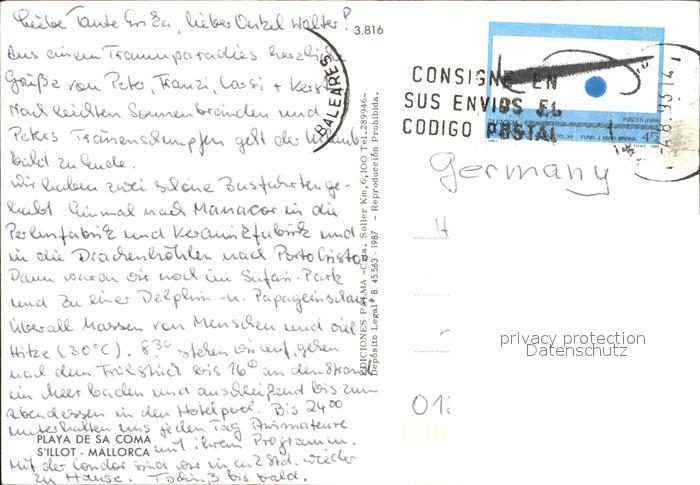 Liebe Tante Erika, lieber Onkel Walter!
Aus einem Traumparadies herzliche
Grüße von Peter, Franzi, + Kerstin
Nach leichten Sonnenbränden und
Peters Tränenschnupfen geht der Urlaub
bald zu Ende.
Wir haben zwei schöne Busfahrten ge-
habt. Einmal nach Manacor in die
Perlenfabrik und Keramikfabrik und
in die Drachenhöhlen nach Porto Cristo.
Dann waren wir noch im Safari-Park
und zu einer Delphin- u. Papageinschau
überall Massen von Menschen und viel
Hitze (30°C). 8.30 stehen wir auf, gehen
nach dem Frühstück bis 16.00 an den Strand
im Meer baden und anschließend bis zum
Abendessen in den Hotelpool. Bis 24.00
unterhalten uns jeden Tag Animateure
mit ihrem Programm.
Mit der Condor sind wir in ca. 2 Std. wieder
zu Hause. bis bald.
PLAYA DE SA COMA
S'ILLOT - MALLORCA
3.816
EDICIONES PALMA - Ctda. Soller Km. 6,100 Tel. 289946-
Depósito Legal B. 45.563 - 1987 - Reproducción Prohibida.
BALEARES
CONSIGNE EN
SUS ENVIOS EL
CODIGO POSTAL
45
Germany
H
privacy protection
Datenschutz
01